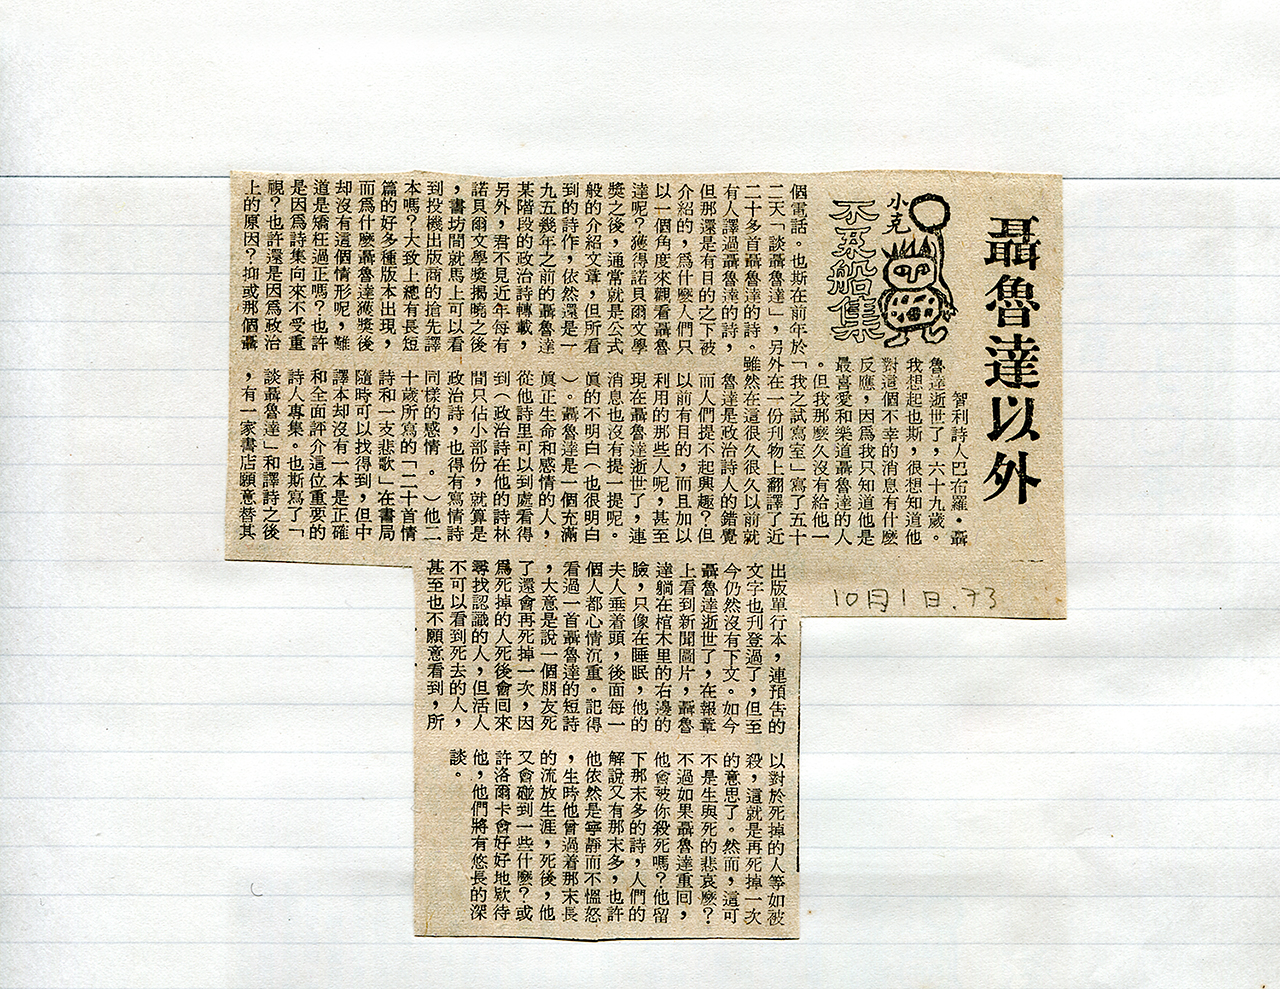 聶魯達以外
小克
不系船集
智利詩人巴布羅・聶
魯達逝世了,六十九歲。
我想起也斯,很想知道他
對這個不幸的消息有什麽
反應,因爲我只知道他是
最喜愛和樂道聶魯達的人
。但我那麽久沒有給他一
個電話。也斯在前年於「我之試寫室」寫了五十
二天「談聶魯達」,另外在一份刊物上翻譯了近
二十多首聶魯達的詩。雖然在這很久很久以前就
有人譯過聶魯達的詩,
但那還是有目的之下被
介紹的,爲什麽人們只
以一個角度來觀看聶魯
達呢?獲得諾貝爾文學
獎之後,通常就是公式
般的介紹文章,但所看
到的詩作,依然還是一
九五幾年之前的聶魯達
某階段的政治詩轉載,
另外,君不見近年每有
諾貝爾文學獎揭曉之後
,書坊間就馬上可以看
到投機出版商的搶先譯
本嗎?大致上總有長短
篇的好多種版本出現,
而爲什麽聶魯達獲獎後
却沒有這個情形呢,難
道是矯枉過正嗎?也許
是因爲詩集向來不受重
視?也許還是因爲政治
上的原因?抑或那個聶
魯達是政治詩人的錯覺
而人們提不起興趣?但
以前有目的,而且加以
利用的那些人呢,甚至
現在聶魯達逝世了,連
消息也沒有提一提呢。
眞的不明白(也很明白
)。聶魯達是一個充滿
眞正生命和感情的人,
從他詩里可以到處看得
到(政治詩在他的詩林
間只佔小部份,就算是
政治詩,也得有寫情詩
同樣的感情。)他二
十歲所寫的「二十首情
詩和一支悲歌」在書局
隨時可以找得到,但中
譯本却沒有一本是正確
和全面評介這位重要的
詩人專集。也斯寫了「
談聶魯達」和譯詩之後
,有一家書店願意替其
出版單行本,連預告的
文字也刊登過了,但至
今仍然沒有下文。如今
聶魯達逝世了,在報章
上看到新聞圖片,聶魯
達躺在棺木里的右邊的
臉,只像在睡眠,他的
夫人垂着頭,後面每一
個人都心情沉重。記得
看過一首聶魯達的短詩
,大意是說一個朋友死
了還會再死掉一次,因
爲死掉的人死後會囘來
尋找認識的人,但活人
不可以看到死去的人,
甚至也不願意看到,所
以對於死掉的人等如被
殺,這就是再死掉一次
的意思了。然而,這可
不是生與死的悲哀麽?
不過如果聶魯達重囘,
他會被你殺死嗎?他留
下那末多的詩,人們的
解說又有那末多,也許
他依然是寧靜而不慍怒
,生時他曾過着那末長
的流放生涯,死後,他
又會碰到一些什麽?或
許洛爾卡會好好地欵待
他,他們將有悠長的深
談。
10月1日.73